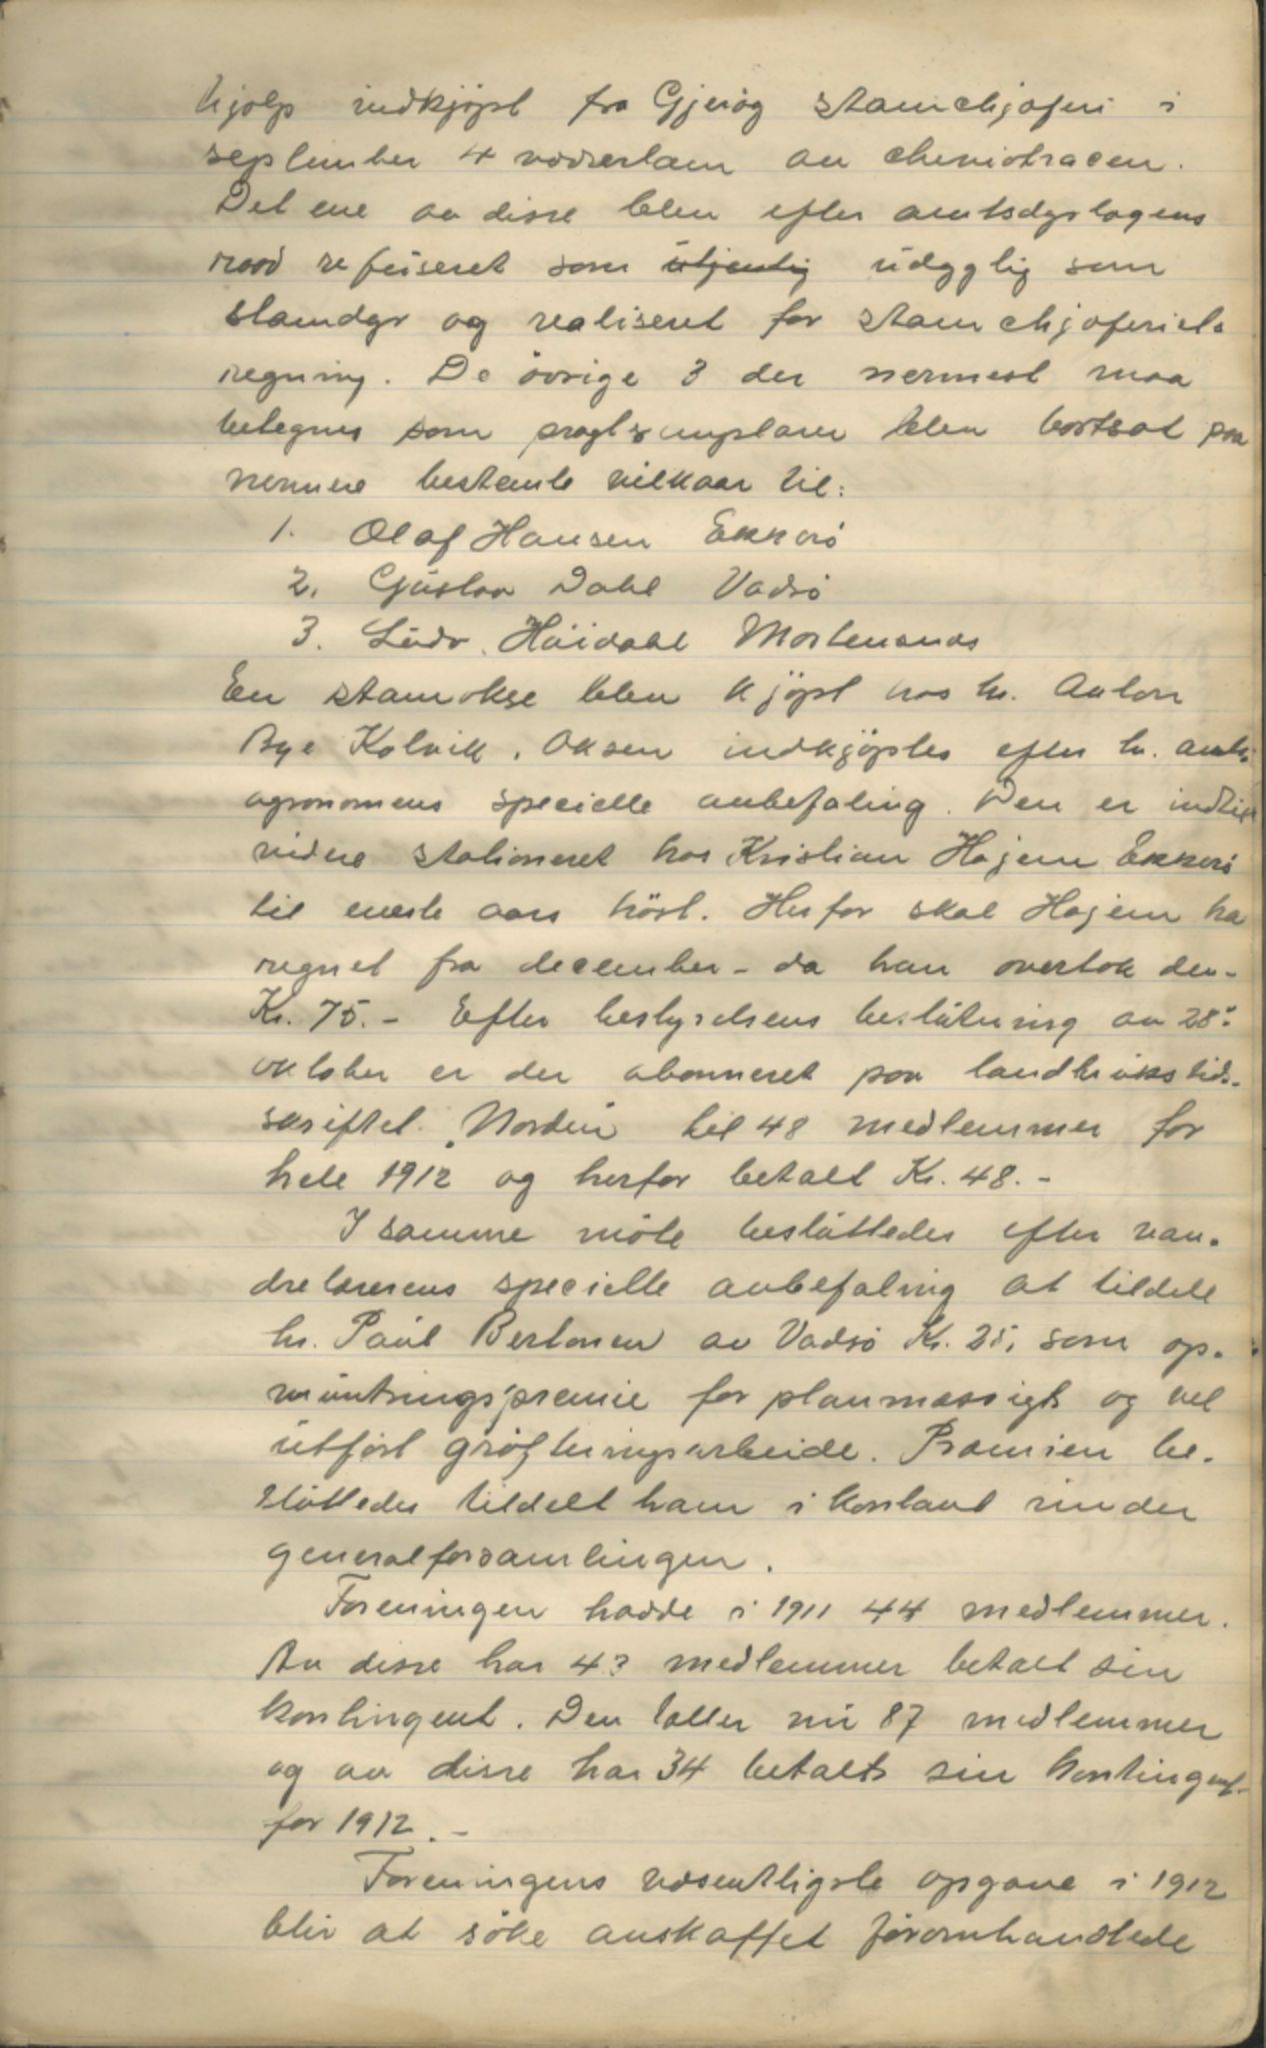 hjælp indkjöpt fra Gjeiög stamchjæferi i
september 4 væderlam av cheviotracen.
Det ene av disse blev efter amtsdyrlægens
raad refuseret som utjenlig udyglig som
stamdyr og realiseret for stamchjæferiets
regning. De övrige 3 der nermest maa
betegnes som pragtexemplarer blev bortsat paa
nermere bestemte vilkaar til:
1. Olaf Hansen Ekkerö
2. Gustav Dahl Vadsö
3. Ludv. Höidahl Mortensnæs
En stamokse blev kjöpt hos hr. Anton
Bye Kolvik. Oksen indkjöptes efter hr. amts-
agronomens specielle anbefaling. Den er indtil
videre stationeret hos Kristian Hagem Ekkerö
til næste aars höst. Herfor skal Hagem ha
regnet fra december - da han overtok den -
Kr. 75.- Efter bestyrelsens beslutning av 28de
oktober er der abonneret paa landbrukstids-
skriftet "Norden" til 48 medlemmer for
hele 1912 og herfor betalt Kr. 48.-
I samme möte besluttedes efter van-
drelærerens specielle anbefaling at tildele
hr. Paul Bertonen av Vadsö Kr. 25, som op-
muntringspremie for planmæssigt og vel
utfört gröftningsarbeide. Præmien be-
sluttedes tildelt ham i kontant under
generalforsamlingen.
Foreningen hadde i 1911 44 medlemmer.
Av disse har 43 medlemmer betalt sin
kontingent. Den tæller nu 87 medlemmer
og av disse har 34 betalt sin kontingent
for 1912.-
Foreningens væsentligste opgave i 1912
blir at söke anskaffet föromhandlede